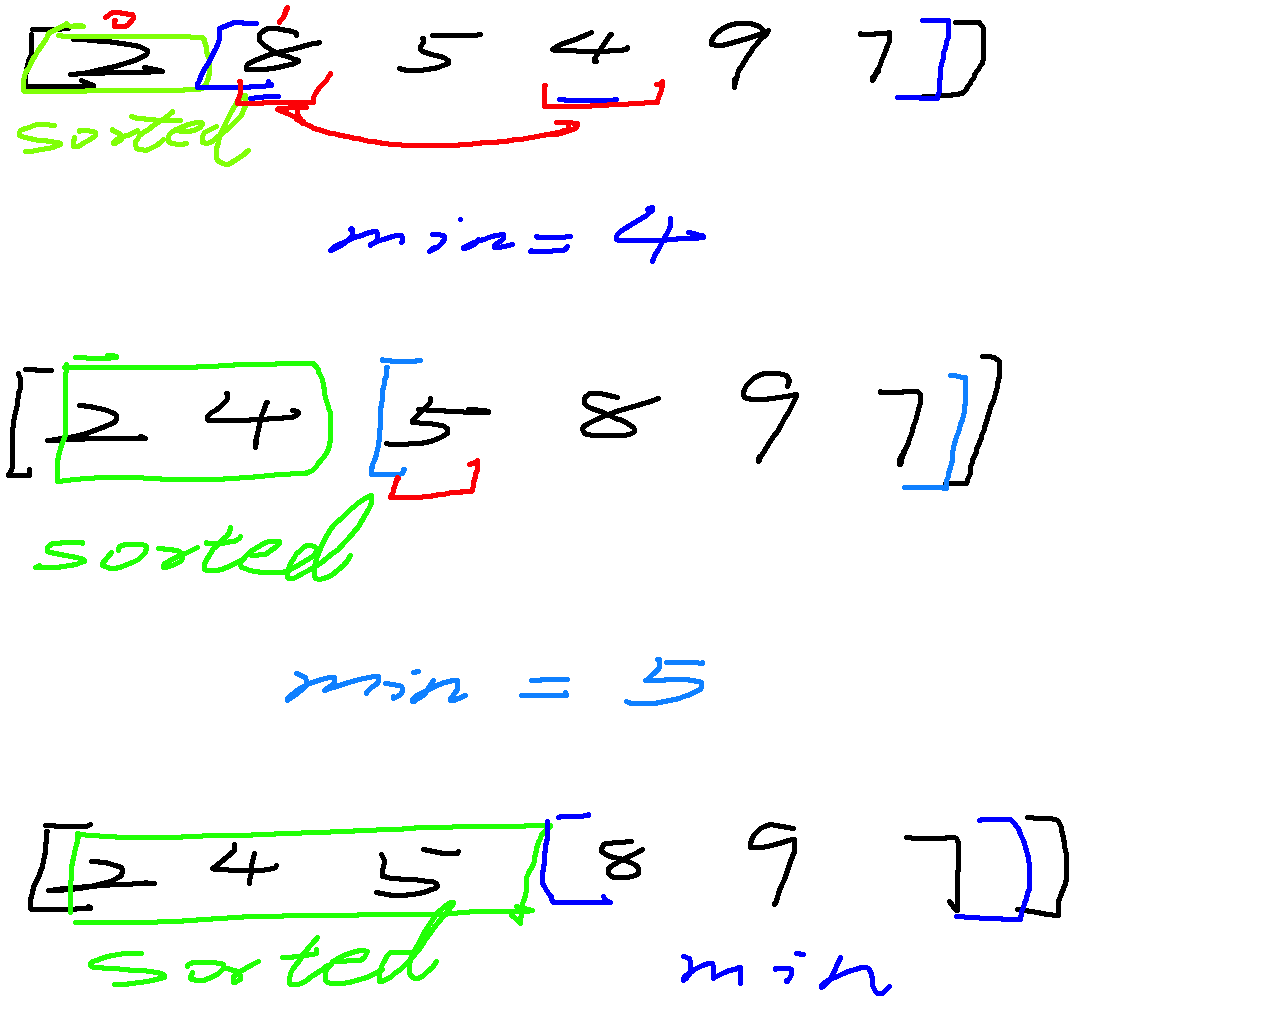 0 1
[2 [8 5 4 9 7]]
sorted
min = 4
[2 4 [5 8 9 7]]
sorted
min = 5
[2 4 5 [8 9 7]]
sorted min